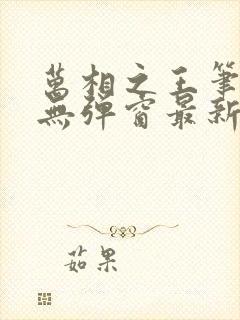 萬相之王筆
無彈窗最新
茹果